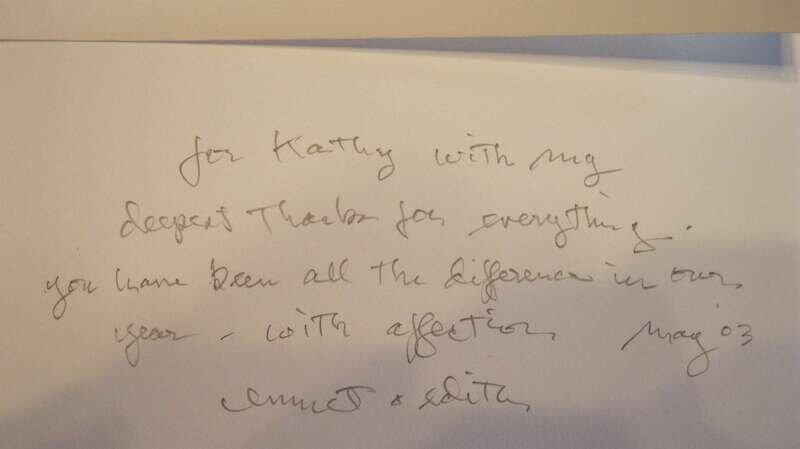 for Kathy with my
deepest thanks for everything.
you have been all the difference in our
year - with affection May '03
emmet & edith